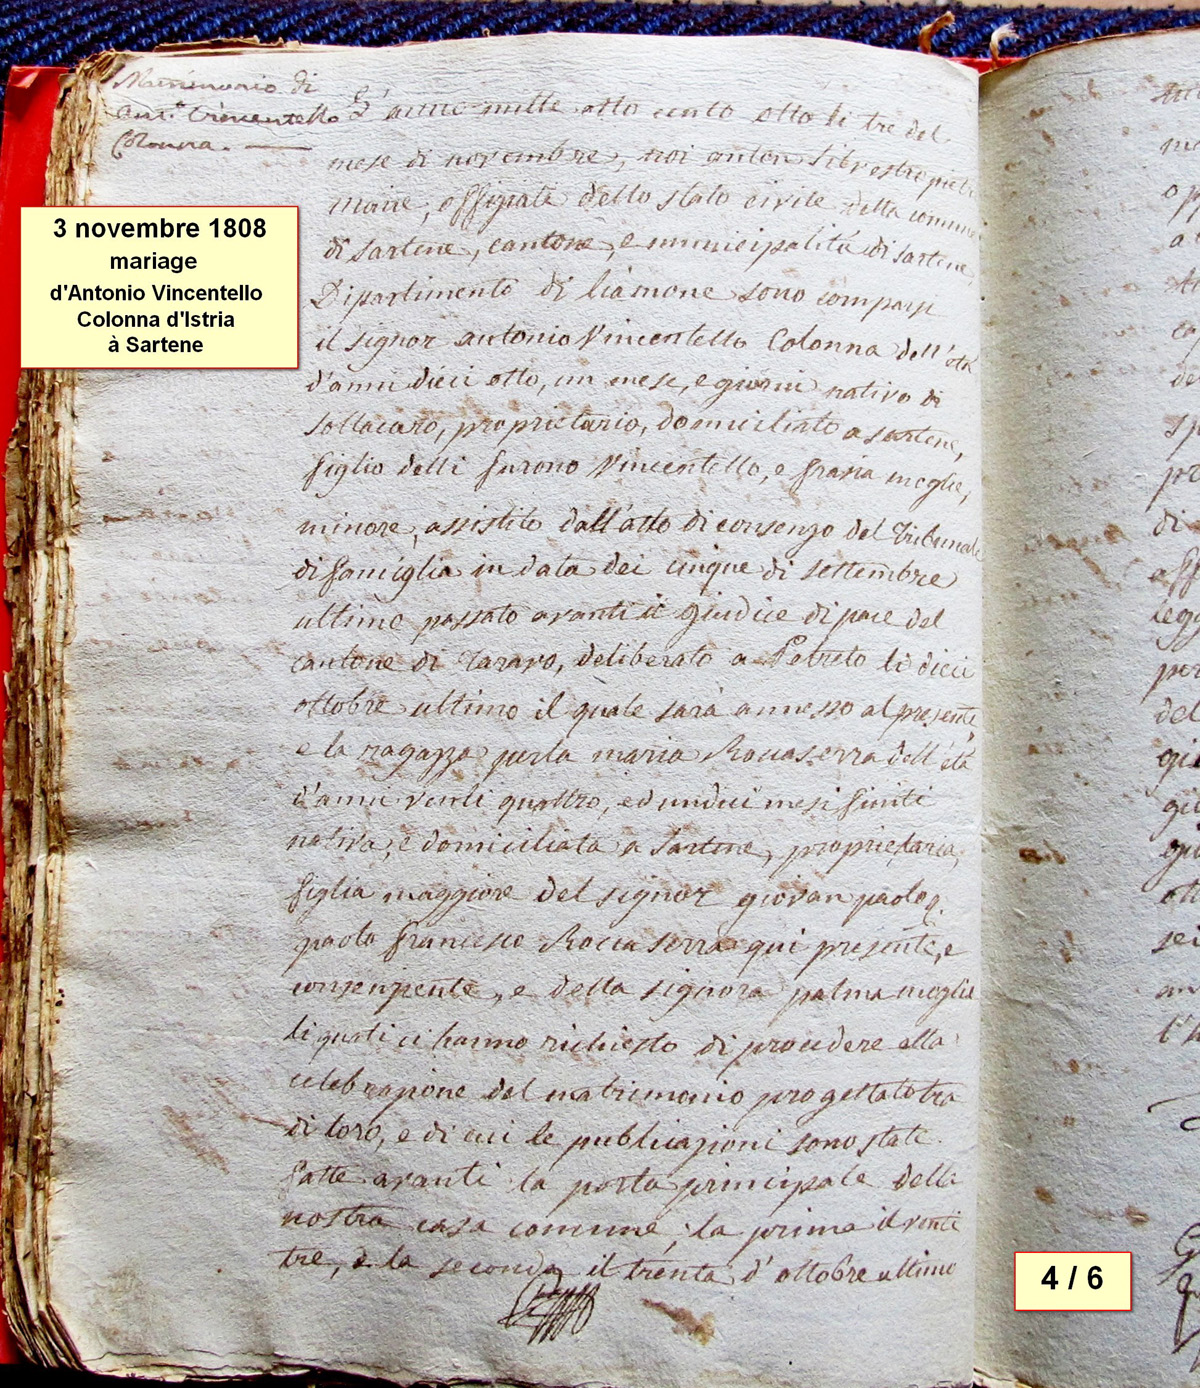 Matrimonio di
Ant.o Vincentello
Colonna.
3 novembre 1808
mariage
d'Antonio Vincentello
Colonna d'Istria
à Sartene
L'anno mille otto cento otto li tre del
mese di novembre, noi anton silvestro pietri
maire, offiziale dello stato civile della commune
di sartene, cantone, e municipalità di sartene,
Dipartimento di liamone sono comparsi
il signor antonio Vincentello Colonna dell'età
d'anni dieci otto, un mese, e giorni nativo di
sollacaro, proprietario, domiciliato a sartene,
figlio delli furono Vincentello, e maria moglie,
minore, assistito dall'atto di consenso del Tribunale
di famiglia in data dei cinque di settembre
ultimo passato avanti il giudice di pace del
cantone di Taravo, deliberato a Petreto li dieci
ottobre ultimo il quale sarà annesso al presente
e la ragazza maria Roccaserra dell'età
d'anni venti quattro, ed undici mesi finiti
nativa, e domiciliata a sartene, proprietaria,
figlia maggiore del signor giovan paolo q.
paolo francesco Rocca serra qui presente, e
consenziente, e della signora palma moglie
li quali ci hanno richiesto di procedere alla
celebrazione del matrimonio progettato tra
di loro, e di cui le publicazioni sono state
fatte avanti la porta principale della
nostra casa comune, la prima il venti
tre, e la seconda il trenta d'ottobre ultimo
4 / 6